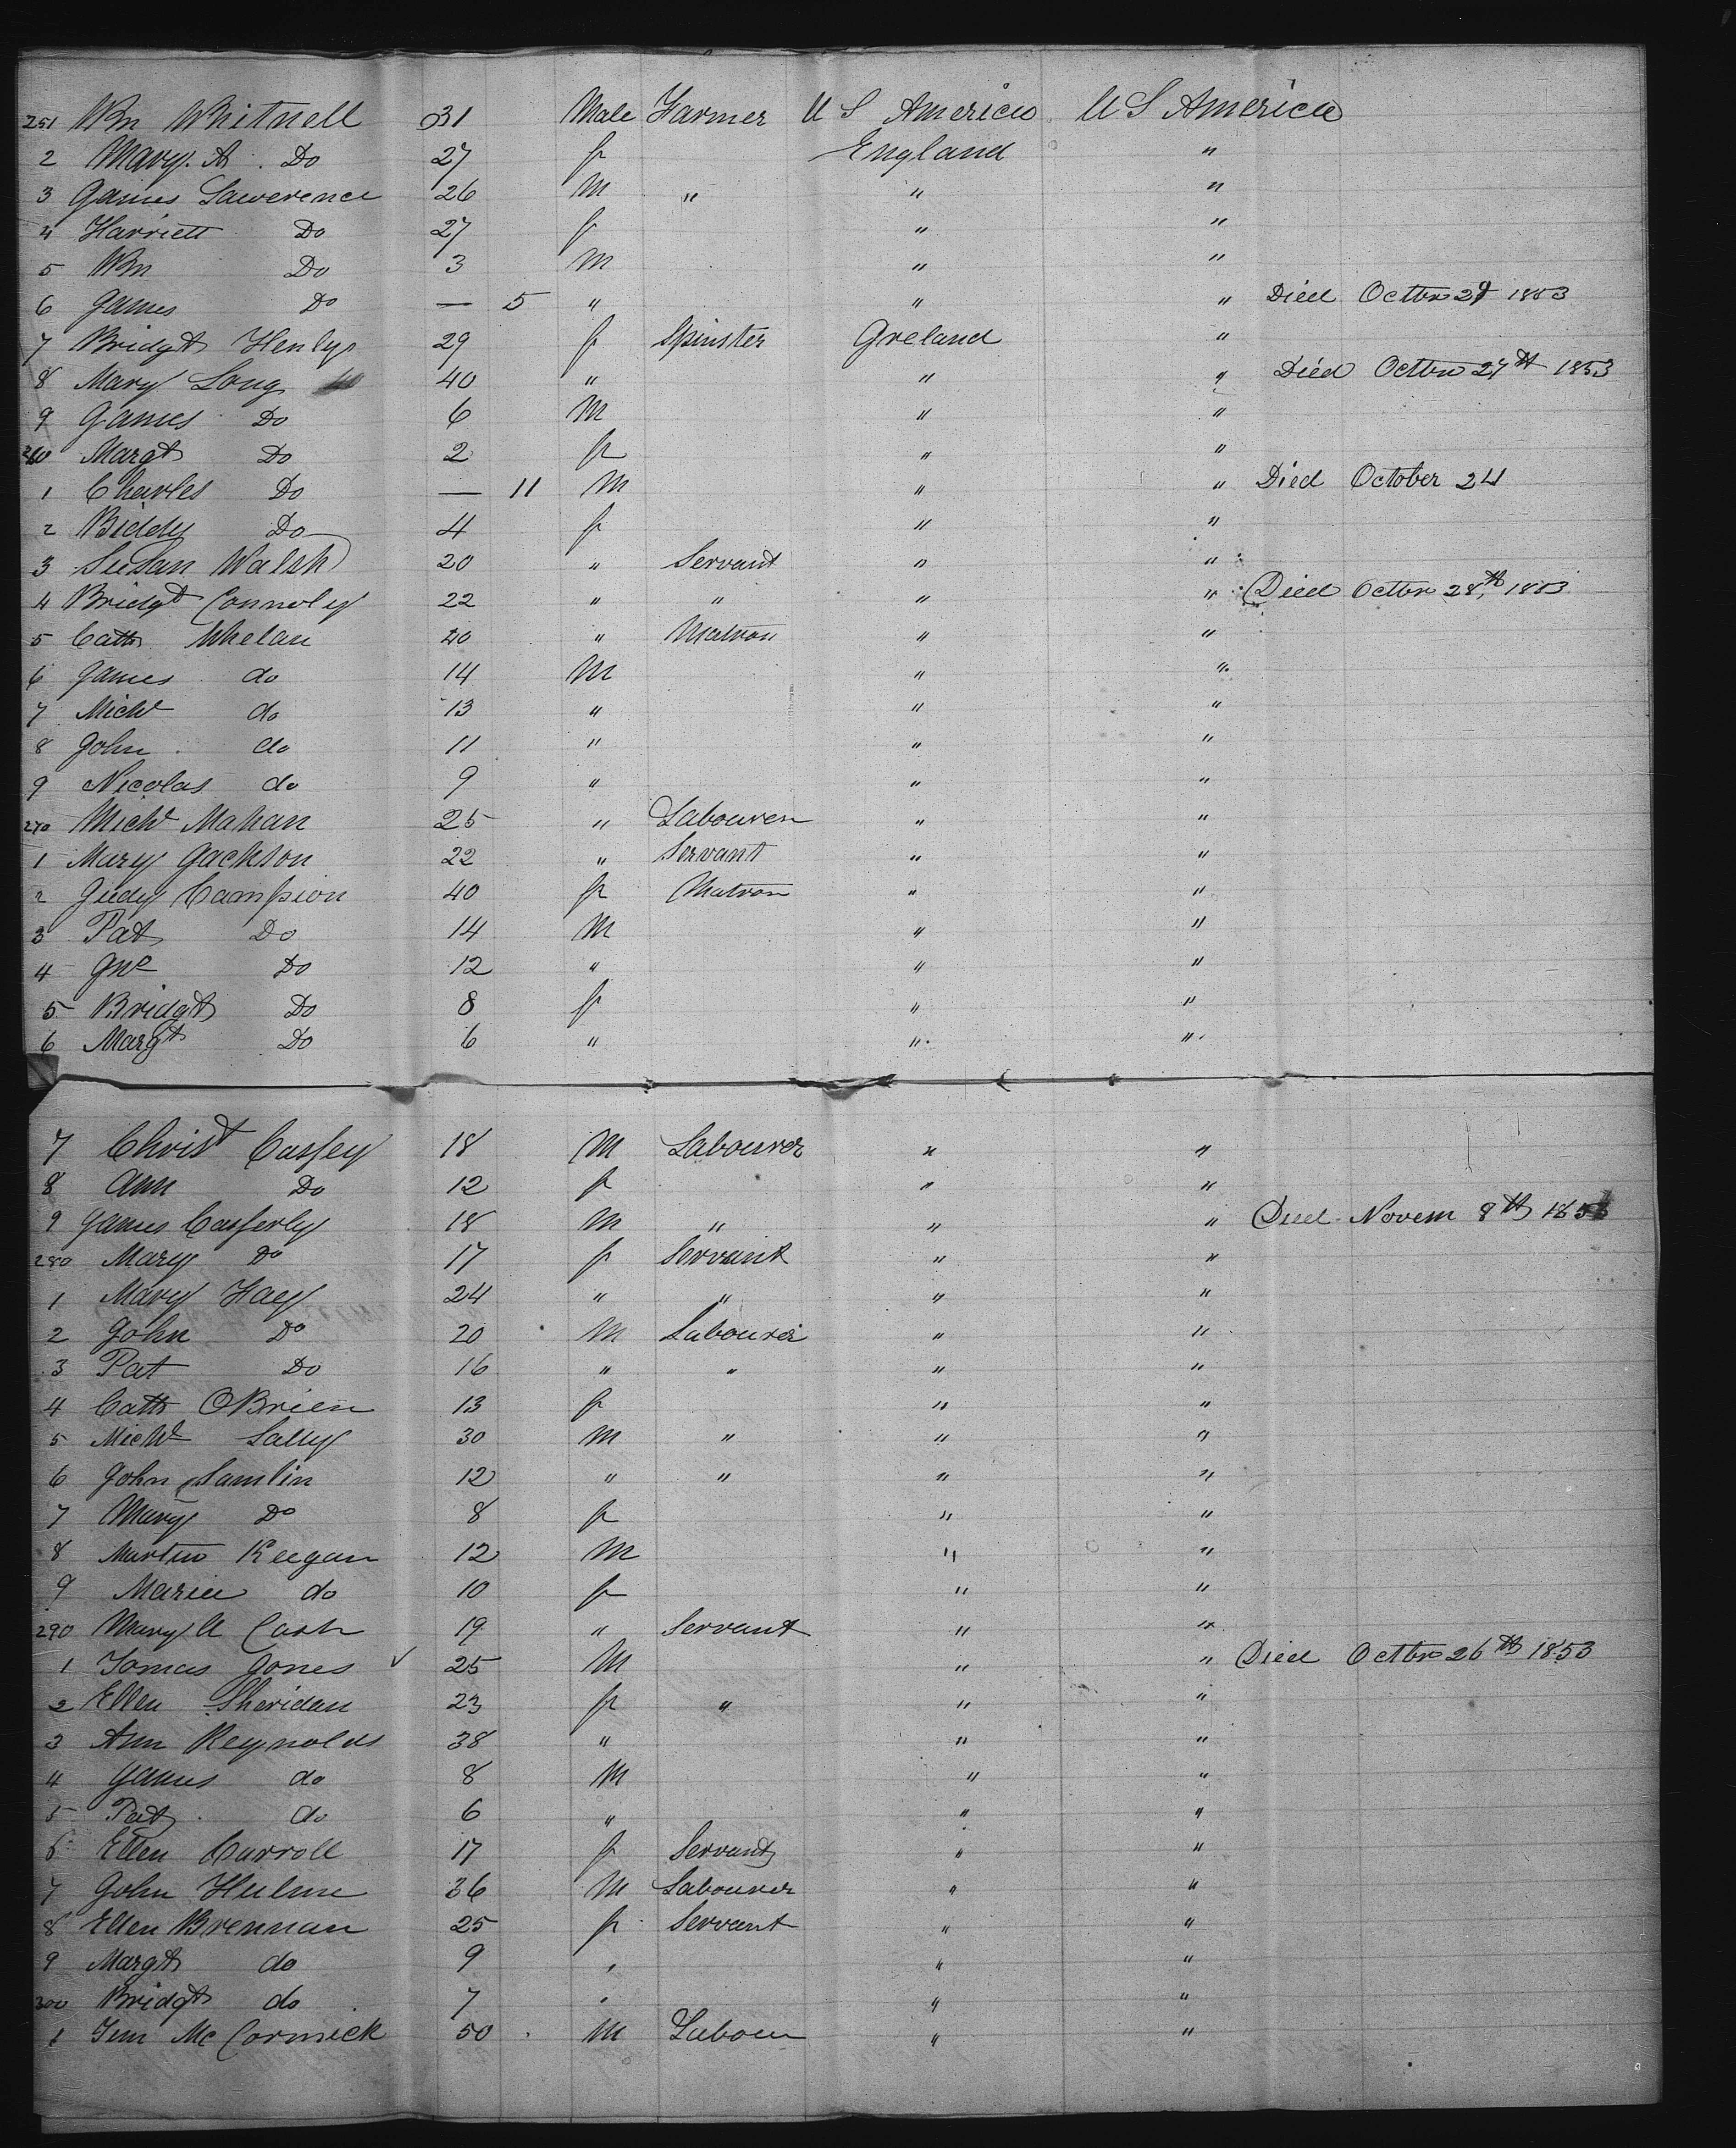 251 Wm Whitnell 31 Male Farmer U S America U S America
2 Mary. A. Do 27 f England "
3 James Lawerence 26 M " " "
4 Harriett Do 27 f " "
5 Wm Do 3 M " "
6 James Do — 5 " " " Died Octbr 29 1853
7 Bridgt Henly 29 f Spinster Ireland "
8 Mary Long 40 " " " Died Octbr 27th 1853
9 James Do 6 M " "
260 Margt Do 2 f " "
1 Charles Do — 11 M " " Died October 24
2 Biddy Do 4 f " "
3 Susan Walsh 20 " Servant " "
4 Bridgt Connoly 22 " " " " Died Octbr 28th 1853
5 Cath Whelan 40 " Matron " "
6 James do 14 M " "
7 Michl do 13 " " "
8 John do 11 " " "
9 Nicolas do 9 " " "
270 Michl Mahan 25 " Labourer " "
1 Mary Jackson 22 " Servant " "
2 Judy Campion 40 f Matron " "
3 Pat Do 14 M " "
4 Jno Do 12 " " "
5 Bridgt Do 8 f " "
6 Margt Do 6 " " "
7 Christ Casfey 18 M Labourer " "
8 Ann Do 12 f " "
9 James Casferly 18 M " " " Died Novem 8th 1853
280 Mary Do 17 f Servant " "
1 Mary Haey 24 " " " "
2 John Do 20 M Labourer " "
3 Pat Do 16 " " " "
4 Cath OBrien 13 f " "
5 Michl Lally 30 M " " "
6 John Lamlin 12 " " " "
7 Mary Do 8 f " "
8 Martin Keegan 12 M " "
9 Maria do 10 f " "
290 Mary A Cash 19 " Servant " "
1 Tomas Jones ✓ 25 M " " Died Octbr 26th 1853
2 Ellen Sheridan 23 f " " "
3 Ann Reynolds 38 " " "
4 James do 8 M " "
5 Pat do 6 " " "
6 Ellen Carroll 17 f Servant " "
7 John Hulme 36 M Labourer " "
8 Ellen Brennan 25 f Servant " "
9 Margt do 9 " " "
300 Bridgt do 7 " " "
1 Jim Mc Cormick 50 M Labour " "